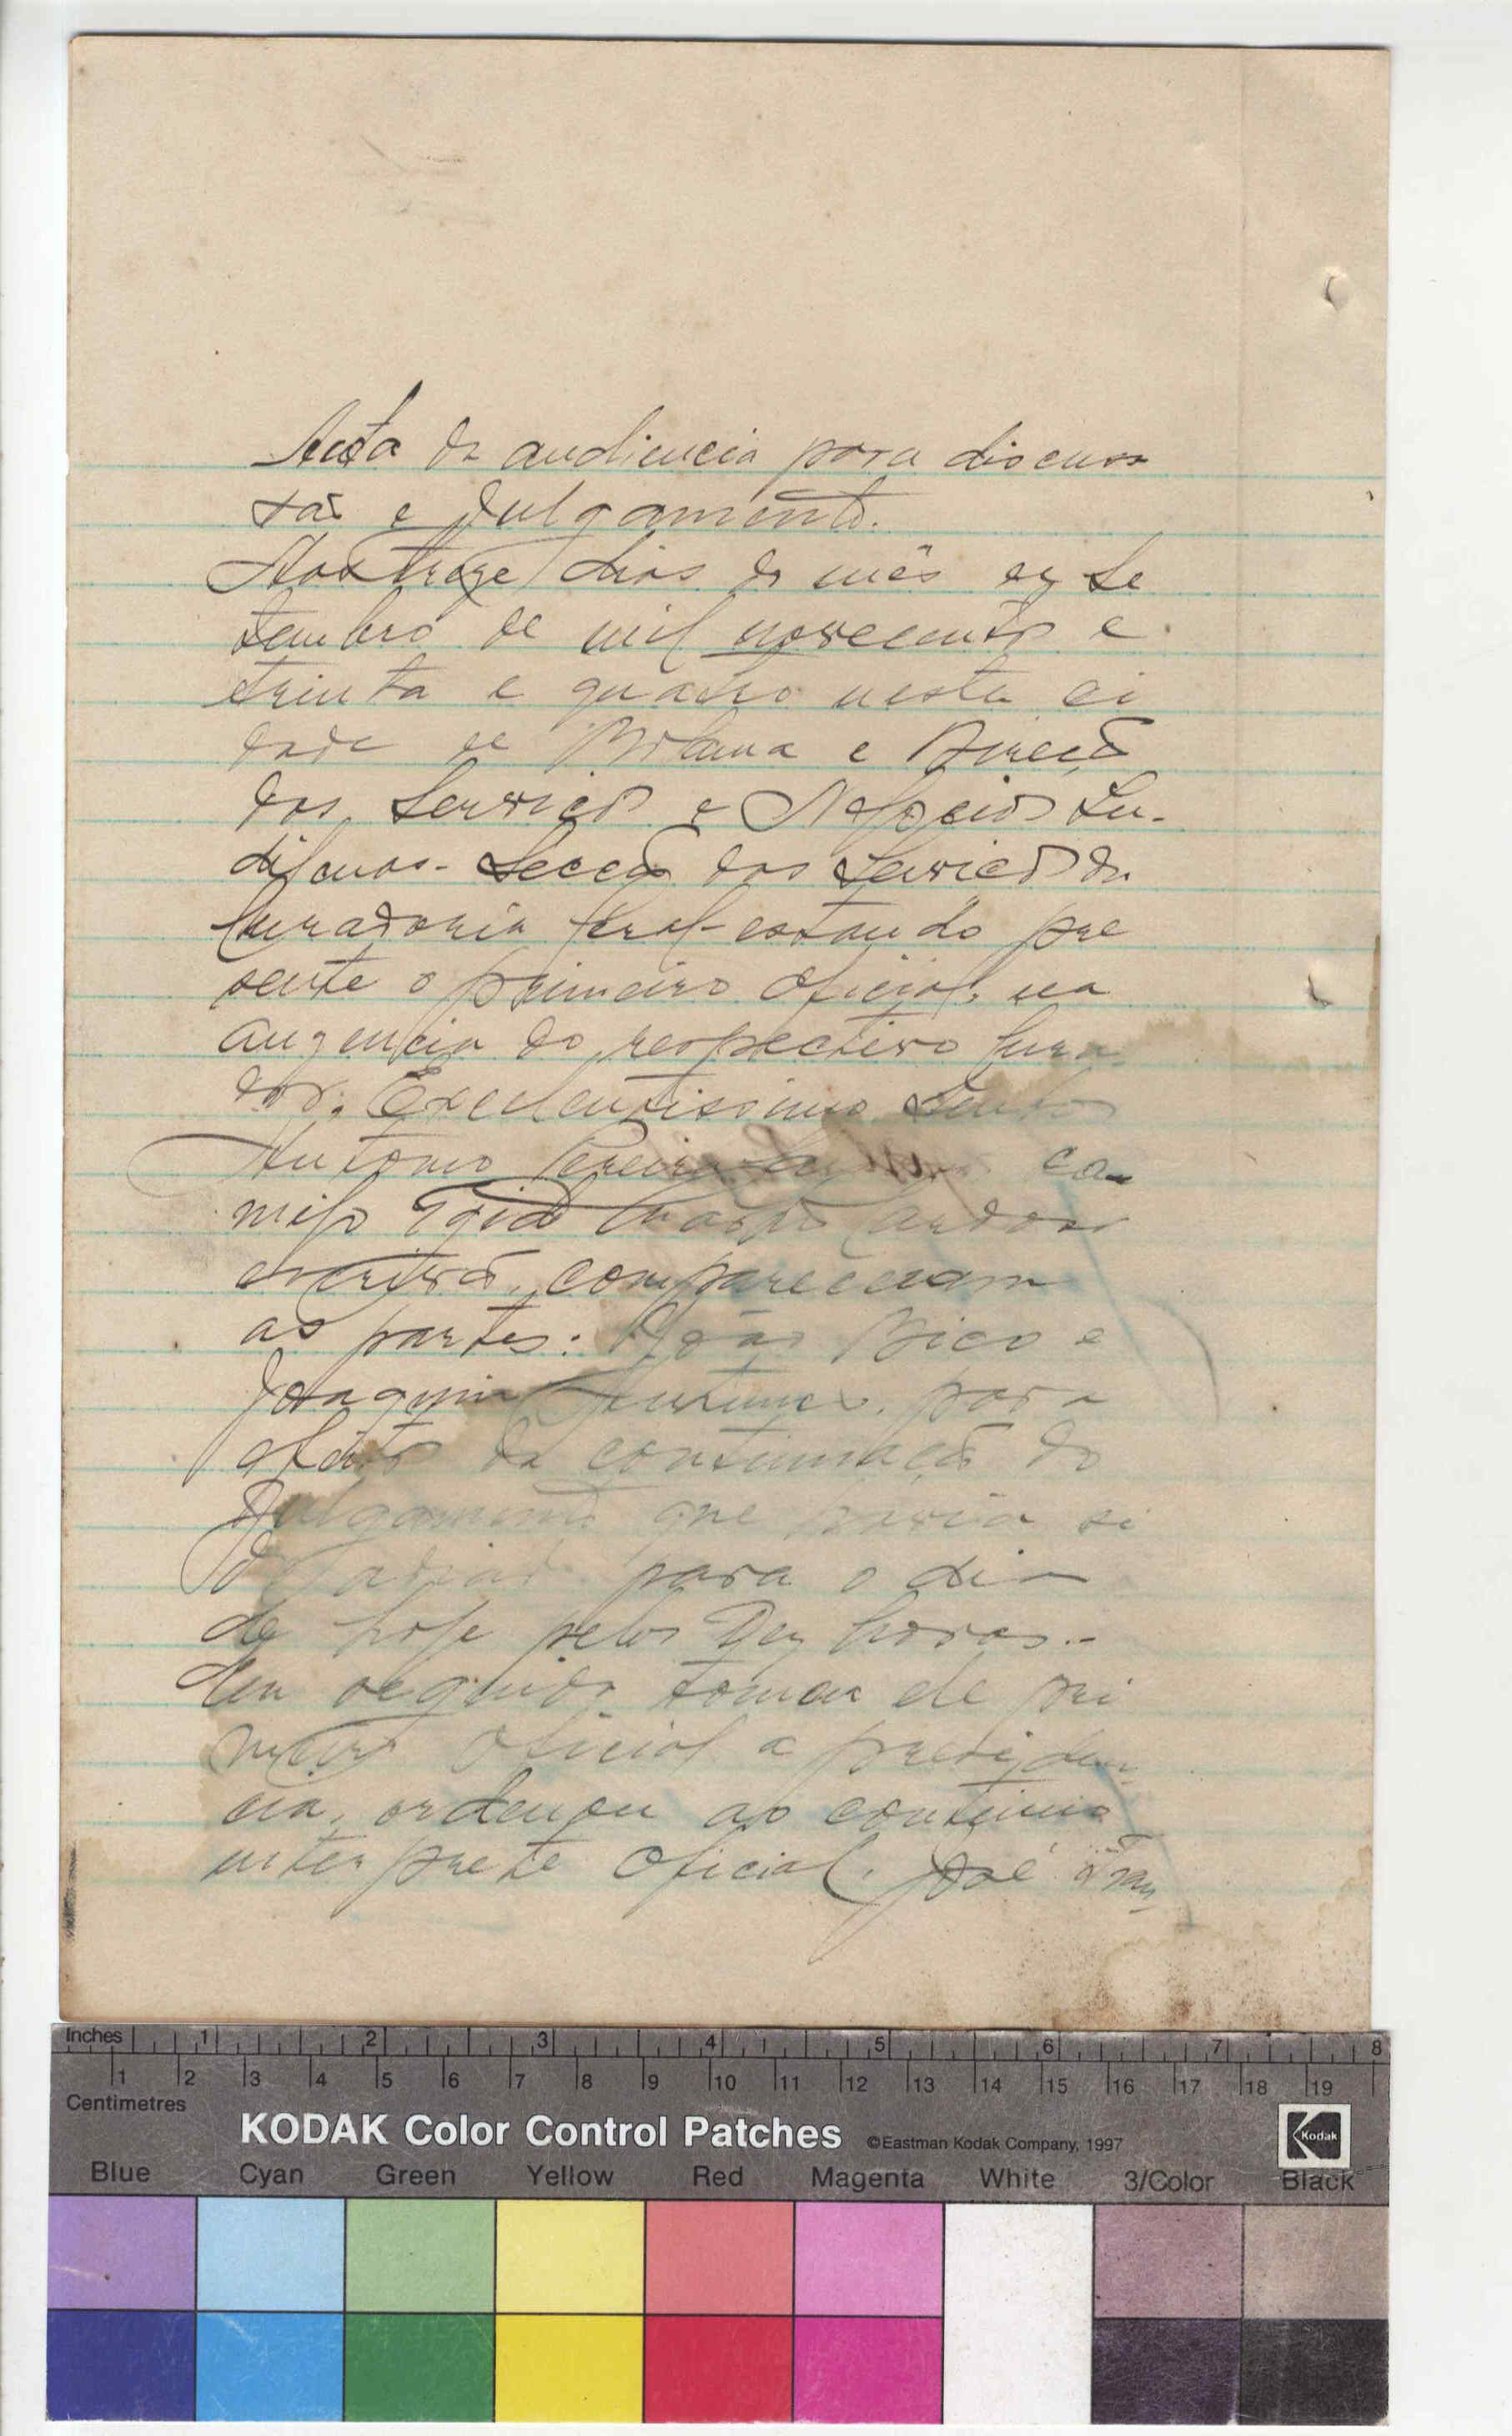 Acta da audiencia para discus
são e julgamento.
Aos treze dias do mês de Se
tembro de mil novecentos e
trinta e quatro nesta ci
dade de Bolama e Direcção
dos Serviços e Negocios In-
digenas - Secção dos Serviços da
Curadoria Geral - estando pre
sente o primeiro oficial, na
auzencia do respectivo Cura
dor, Excelentissimo Senhor
Antonio Pereira ca-
migo Egidio Cardoso
escrivão, compareceram
as partes: João Bico e
Joaquim Antunes, para
efeitos da continuação do
julgamento que havia si
do adiado para o dia
de hoje pelas Dez horas.-
Em seguida tomou ele pri
meiro oficial a presiden-
cia, ordenou ao continuo
interprete oficial, José
Inches 1 2 3 4 5 6 7 8
1 2 3 4 5 6 7 8 9 10 11 12 13 14 15 16 17 18 19
Centimetres
KODAK Color Control Patches ©Eastman Kodak Company, 1997 Kodak
Blue Cyan Green Yellow Red Magenta White 3/Color Black